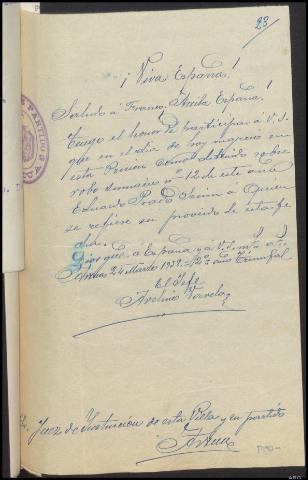 23
¡Viva España!
Saludo á Franco. ¡Arriba España!
Tengo el honor de participar á V.S.
que en el día de hoy ingresó en
esta Prisión como detenido sobre
robo sumario nº 15 de este año
Eduardo Prado á Quien
se refiere su proveido de esta fe
cha.
Dios gue. á España y á V.S. ms. as.
24 Marzo 1938 = 2º año Triunfal
El Jefe
Avelino
Sr. Juez de Instrucción de esta Villa y su partido
PARTIDO